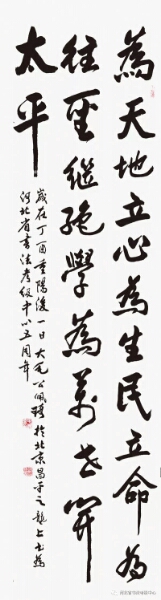 為天地立心為生民立命為
往聖繼絕學為萬世開
太平
歲在丁酉重陽後一日 於北京昌平之
河北省書法考級中心五周年